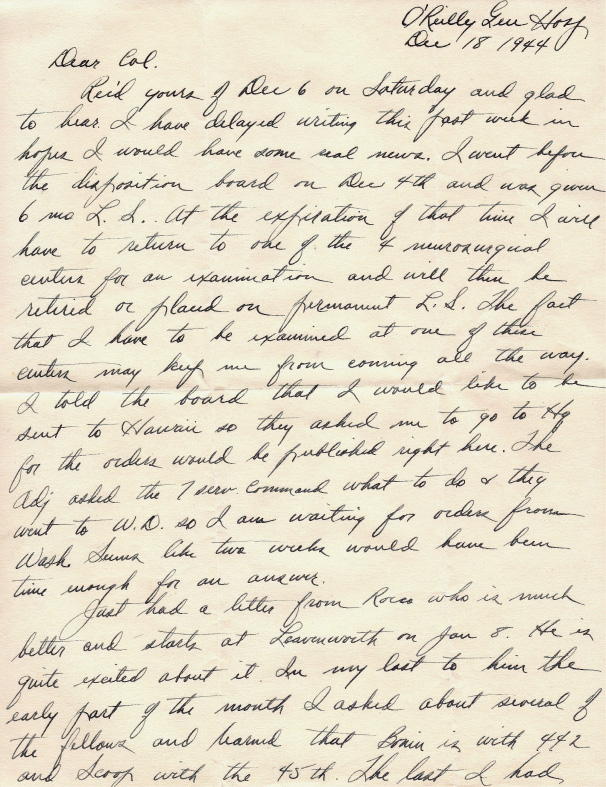 O'Reilly Gen Hosp
Dec 18 1944
Dear Col.
Rec'd yours of Dec 6 on Saturday and glad
to hear. I have delayed writing this past week in
hopes I would have some real news. I went before
the disposition board on Dec 4th and was given
6 mo L. S. At the expiration of that time I will
have to return to one of the 4 neurosurgical
centers for an examination and will then be
retired or placed on permanent L. S. The fact
that I have to be examined at one of these
centers may keep me from coming all the way.
I told the board that I would like to be
sent to Hawaii so they asked me to go to Hq
for the orders would be published right here. The
Adj asked the 7 serv. Command what to do & they
went to W.D. so I am waiting for orders from
Wash. Seems like two weeks would have been
time enough for an answer.
Just had a letter from Rocco who is much
better and starts at Leavenworth on Jan 8. He is
quite excited about it. In my last to him the
early part of the month I asked about several of
the fellows and learned that is with 442
and Scoop with the 45th. The last I had